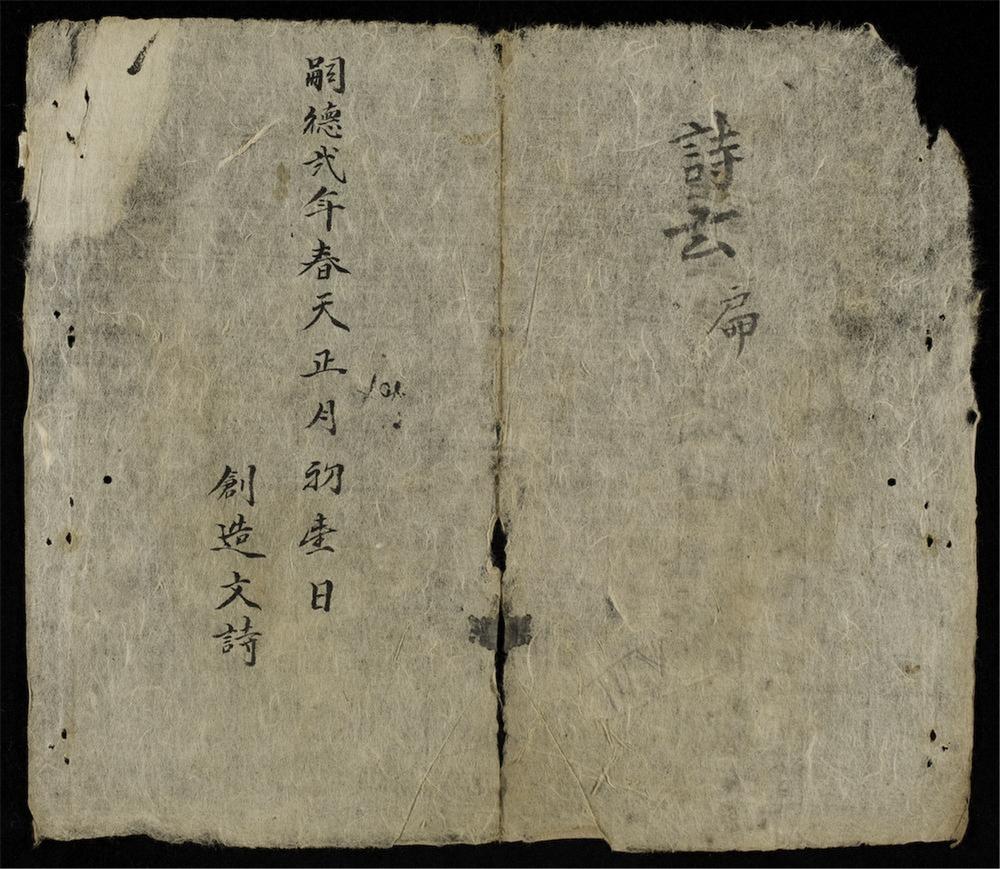 詩云
扁
嗣德弍年春天正月初壹日
創造文詩